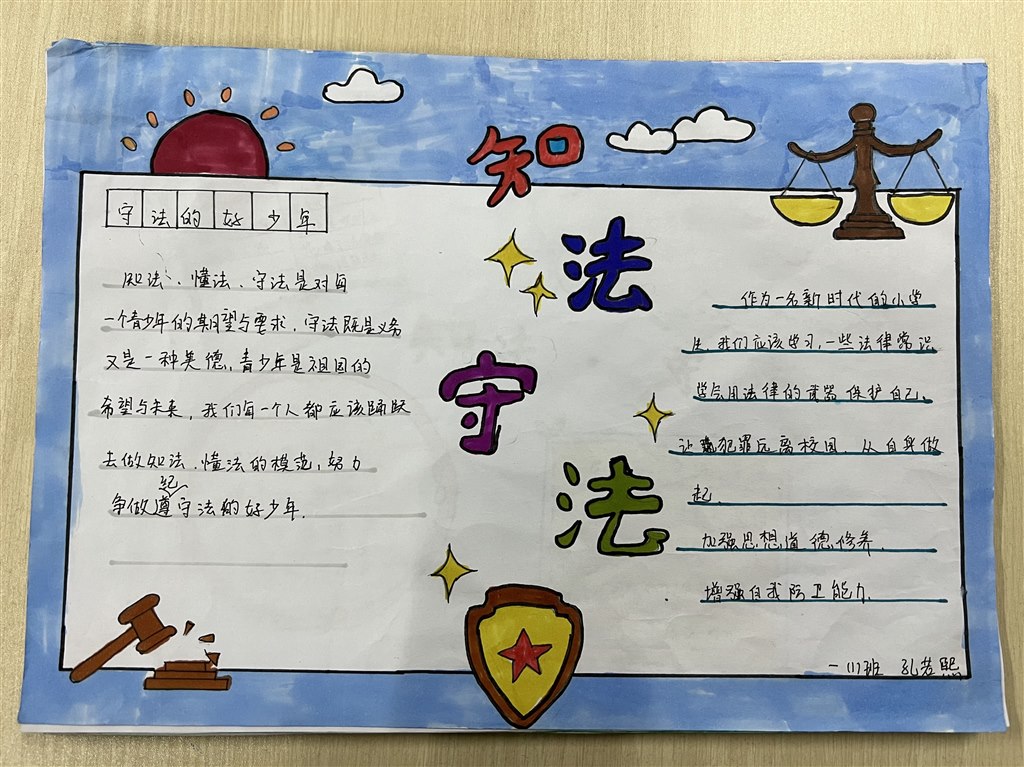 知法守法
守法的好少年
知法、懂法、守法是对每
一个青少年的期望与要求,守法既是义务
又是一种美德,青少年是祖国的
希望与未来,我们每一个人都应该踊跃
去做知法、懂法的模范,努力
争做遵纪守法的好少年.
作为一名新时代的小学
生,我们应该学习,一些法律常识
学会用法律的武器保护自己、
让犯罪远离校园 从自身做
起.
加强思想道德修养,
增强自我防卫能力.
一(1)班 孔若熙